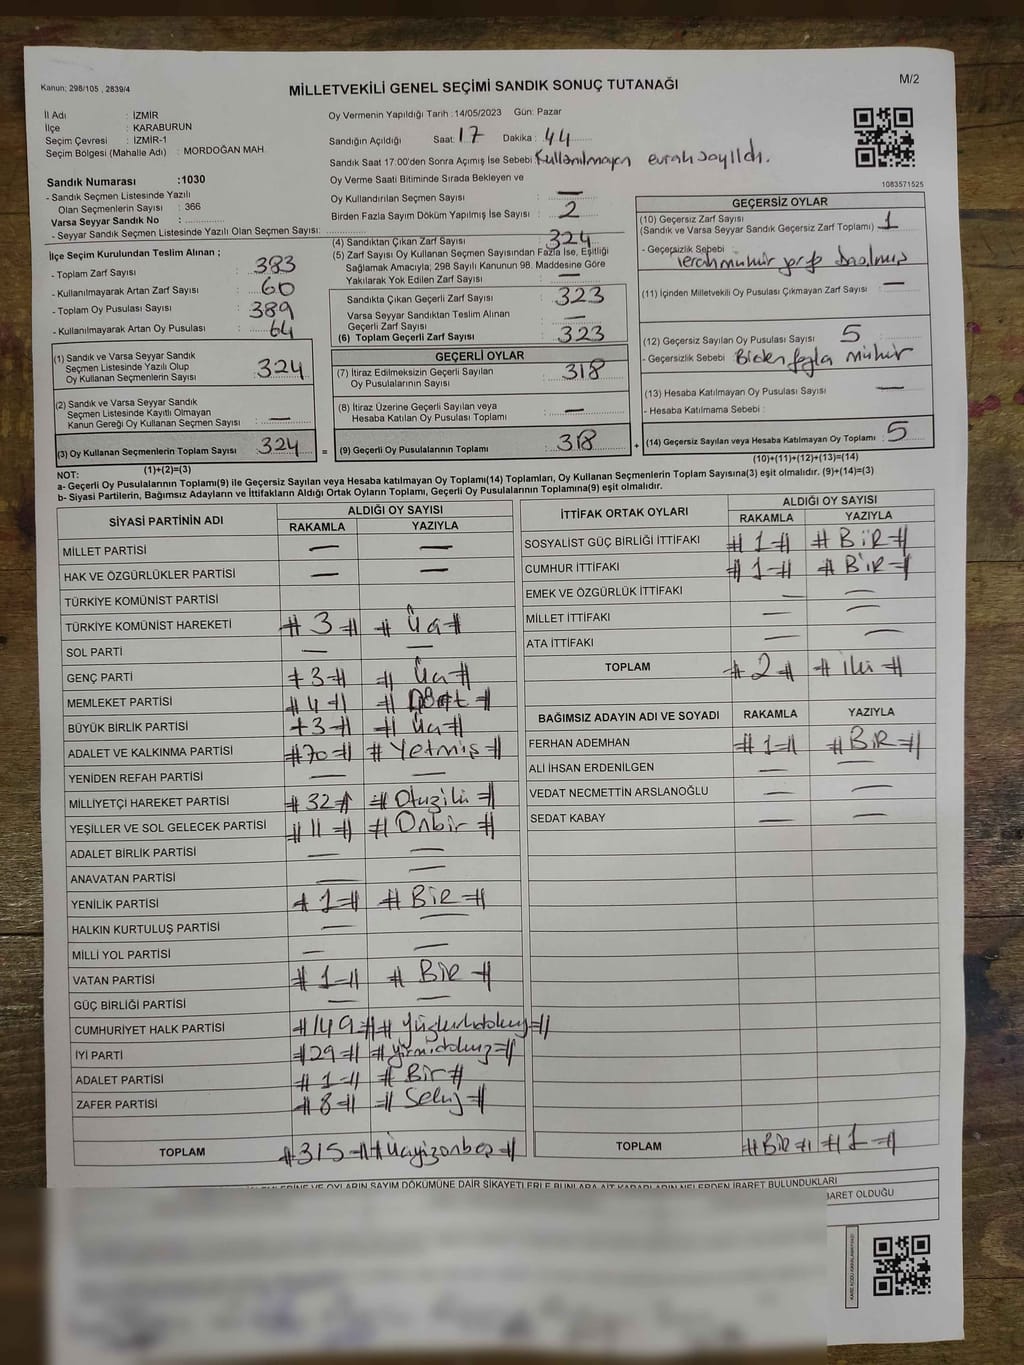 Kanun; 298/105 , 2839/4
MİLLETVEKİLİ GENEL SEÇİMİ SANDIK SONUÇ TUTANAĞI
M/2
İl Adı : İZMİR
İlçe : KARABURUN
Seçim Çevresi : İZMİR-1
Seçim Bölgesi (Mahalle Adı) : MORDOĞAN MAH.
Oy Vermenin Yapıldığı Tarih :14/05/2023 Gün: Pazar
Sandığın Açıldığı Saat: 17 Dakika : 44
Sandık Saat 17.00'den Sonra Açımış İse Sebebi Kullanılmayan evrak sayıldı.
Sandık Numarası :1030
- Sandık Seçmen Listesinde Yazılı
Olan Seçmenlerin Sayısı : 366
Varsa Seyyar Sandık No :
- Seyyar Sandık Seçmen Listesinde Yazılı Olan Seçmen Sayısı:
Oy Verme Saati Bitiminde Sırada Bekleyen ve
Oy Kullandırılan Seçmen Sayısı : —
Birden Fazla Sayım Döküm Yapılmış İse Sayısı : 2
1083571525
İlçe Seçim Kurulundan Teslim Alınan ;
- Toplam Zarf Sayısı : 383
- Kullanılmayarak Artan Zarf Sayısı : 60
- Toplam Oy Pusulası Sayısı : 389
- Kullanılmayarak Artan Oy Pusulası : 64
(1) Sandık ve Varsa Seyyar Sandık
Seçmen Listesinde Yazılı Olup
Oy Kullanan Seçmenlerin Sayısı : 324
(2) Sandık ve Varsa Seyyar Sandık
Seçmen Listesinde Kayıtlı Olmayan
Kanun Gereği Oy Kullanan Seçmen Sayısı : —
(3) Oy Kullanan Seçmenlerin Toplam Sayısı : 324
(1)+(2)=(3)
(4) Sandıktan Çıkan Zarf Sayısı : 324
(5) Zarf Sayısı Oy Kullanan Seçmen Sayısından Fazla İse, Eşitliği
Sağlamak Amacıyla; 298 Sayılı Kanunun 98. Maddesine Göre
Yakılarak Yok Edilen Zarf Sayısı : —
Sandıkta Çıkan Geçerli Zarf Sayısı : 323
Varsa Seyyar Sandıktan Teslim Alınan
Geçerli Zarf Sayısı : —
(6) Toplam Geçerli Zarf Sayısı : 323
GEÇERLİ OYLAR
(7) İtiraz Edilmeksizin Geçerli Sayılan
Oy Pusulalarının Sayısı : 318
(8) İtiraz Üzerine Geçerli Sayılan veya
Hesaba Katılan Oy Pusulası Toplamı : —
= (9) Geçerli Oy Pusulalarının Toplamı : 318 +
GEÇERSİZ OYLAR
(10) Geçersiz Zarf Sayısı
(Sandık ve Varsa Seyyar Sandık Geçersiz Zarf Toplamı) : 1
- Geçersizlik Sebebi
(11) İçinden Milletvekili Oy Pusulası Çıkmayan Zarf Sayısı : —
(12) Geçersiz Sayılan Oy Pusulası Sayısı : 5
- Geçersizlik Sebebi : Birden fazla mühür
(13) Hesaba Katılmayan Oy Pusulası Sayısı : —
- Hesaba Katılmama Sebebi :
(14) Geçersiz Sayılan veya Hesaba Katılmayan Oy Toplamı : 5
(10)+(11)+(12)+(13)=(14)
NOT:
a- Geçerli Oy Pusulalarının Toplamı(9) ile Geçersiz Sayılan veya Hesaba katılmayan Oy Toplamı(14) Toplamları, Oy Kullanan Seçmenlerin Toplam Sayısına(3) eşit olmalıdır. (9)+(14)=(3)
b- Siyasi Partilerin, Bağımsız Adayların ve İttifakların Aldığı Ortak Oyların Toplamı, Geçerli Oy Pusulalarının Toplamına(9) eşit olmalıdır.
SİYASİ PARTİNİN ADI ALDIĞI OY SAYISI
RAKAMLA YAZIYLA
MİLLET PARTİSİ — —
HAK VE ÖZGÜRLÜKLER PARTİSİ — —
TÜRKİYE KOMÜNİST PARTİSİ
TÜRKİYE KOMÜNİST HAREKETİ # 3 # # Üç #
SOL PARTİ — —
GENÇ PARTİ # 3 # # Üç #
MEMLEKET PARTİSİ # 4 # # Dört #
BÜYÜK BİRLİK PARTİSİ # 3 # # Üç #
ADALET VE KALKINMA PARTİSİ # 70 # # Yetmiş #
YENİDEN REFAH PARTİSİ — —
MİLLİYETÇİ HAREKET PARTİSİ # 32 # # Otuziki #
YEŞİLLER VE SOL GELECEK PARTİSİ # 11 # # Onbir #
ADALET BİRLİK PARTİSİ — —
ANAVATAN PARTİSİ — —
YENİLİK PARTİSİ # 1 # # BİR #
HALKIN KURTULUŞ PARTİSİ — —
MİLLİ YOL PARTİSİ — —
VATAN PARTİSİ # 1 # # BİR #
GÜÇ BİRLİĞİ PARTİSİ — —
CUMHURİYET HALK PARTİSİ # 149 # # yüzkırkdokuz #
İYİ PARTİ # 29 # # yirmidokuz #
ADALET PARTİSİ # 1 # # Bir #
ZAFER PARTİSİ # 8 # # Sekiz #
TOPLAM # 315 # # Üçyüzonbeş #
İTTİFAK ORTAK OYLARI ALDIĞI OY SAYISI
RAKAMLA YAZIYLA
SOSYALİST GÜÇ BİRLİĞİ İTTİFAKI # 1 # # BİR #
CUMHUR İTTİFAKI # 1 # # BİR #
EMEK VE ÖZGÜRLÜK İTTİFAKI — —
MİLLET İTTİFAKI — —
ATA İTTİFAKI — —
TOPLAM # 2 # # iki #
BAĞIMSIZ ADAYIN ADI VE SOYADI RAKAMLA YAZIYLA
FERHAN ADEMHAN # 1 # # BİR #
ALİ İHSAN ERDENİLGEN — —
VEDAT NECMETTİN ARSLANOĞLU — —
SEDAT KABAY — —
TOPLAM # BİR # # 1 #
OYLARIN SAYIM DÖKÜMÜNE DAİR ŞİKAYETLERLE BUNLARA AİT KARARLARIN NELERDEN İBARET BULUNDUKLARI
İBARET OLDUĞU